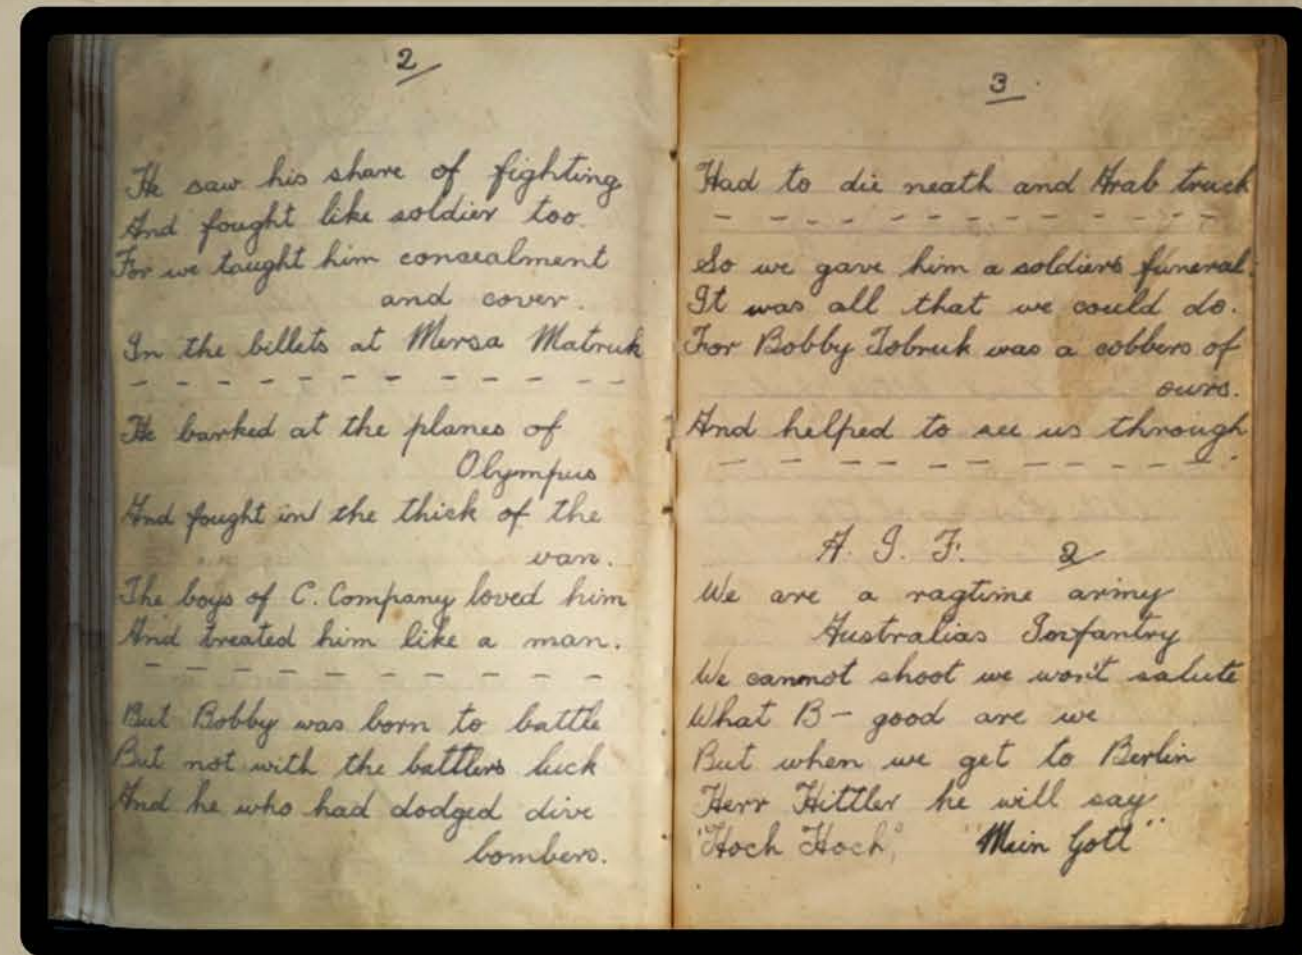 2
He saw his share of fighting
And fought like soldier too.
For we taught him concealment
and cover.
In the billets at Mersa Matruk
- - - - - - - - - - - -
He barked at the planes of
Olympus
And fought in the thick of the
van.
The boys of C. Company loved him
And treated him like a man.
- - - - - - - - -
But Bobby was born to battle
But not with the battlers luck
And he who had dodged dive
bombers.
3
Had to die neath and Arab truck
- - - - - - - - - - -
So we gave him a soldiers funeral.
It was all that we could do.
For Bobby Tobruk was a cobbers of
ours.
And helped to see us through
- - - - - - - - .
A. I. F. 2
We are a ragtime army
Australias Infantry
We cannot shoot we won't salute
What B- good are we
But when we get to Berlin
Herr Hittler he will say
"Hoch Hoch," "Mein Gott"